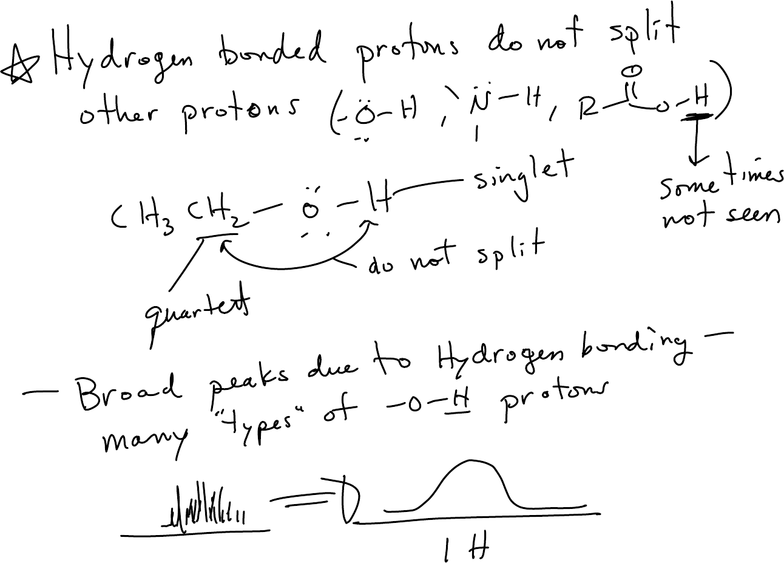 ☆ Hydrogen bonded protons do not split
other protons (-Ö-H, N̈-H, R O O-H)
CH3 CH2 - Ö - H singlet
some times
not seen
do not split
quartet
- Broad peaks due to Hydrogen bonding -
many "types" of -O-H protons
1 H